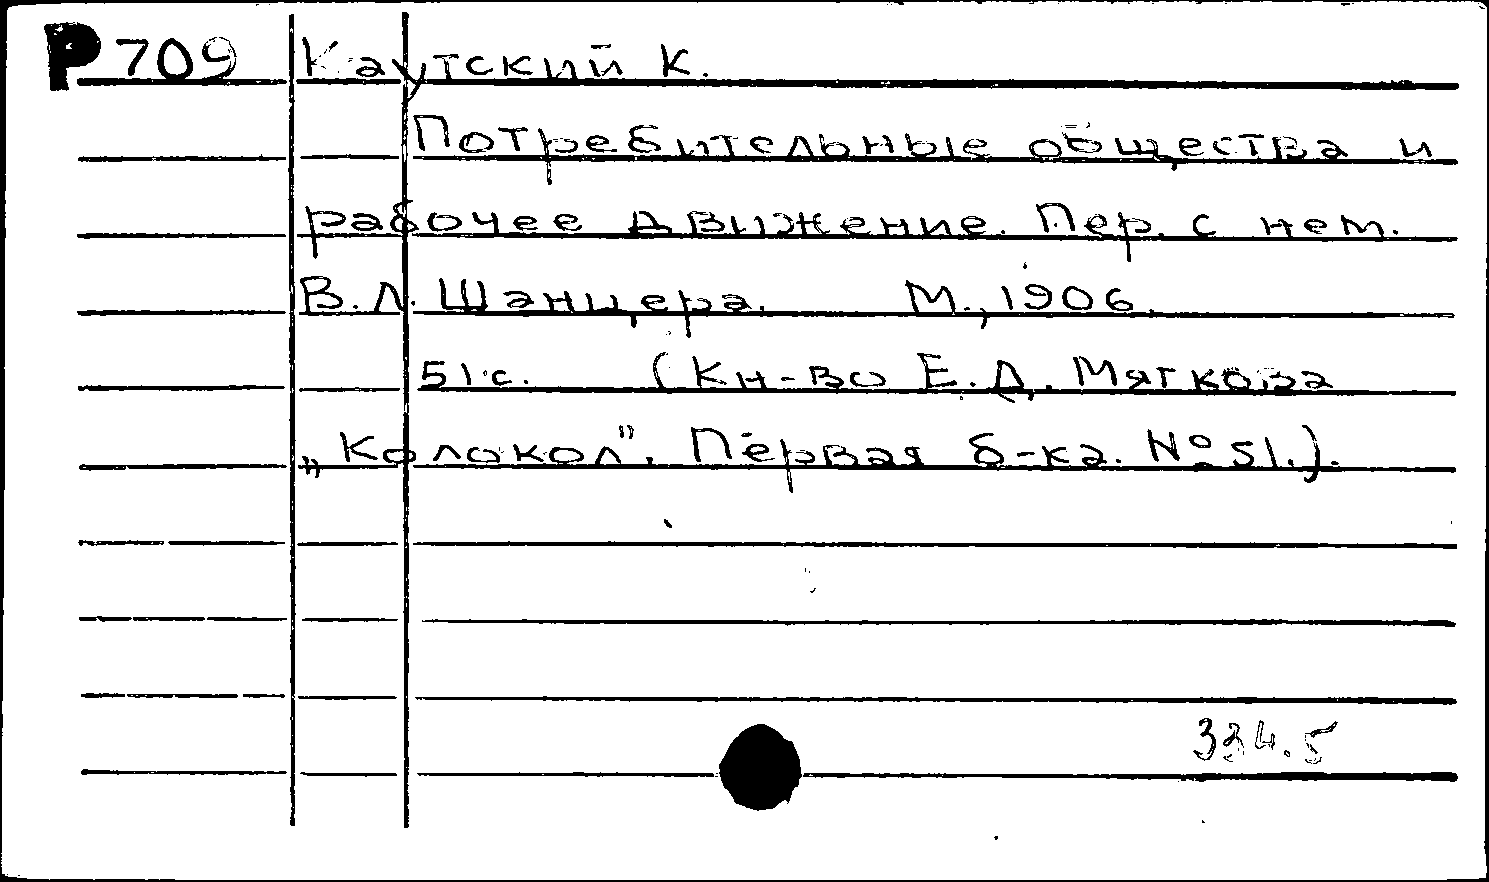 Р709 Каутский К.
Потребительные общества и
рабочее движение. Пер. с нем.
В.Л. Шанцера. М., 1906.
51 с. (Кн-во Е.Д. Мягкова
„Колокол". Первая б-ка. № 51.).
334.5